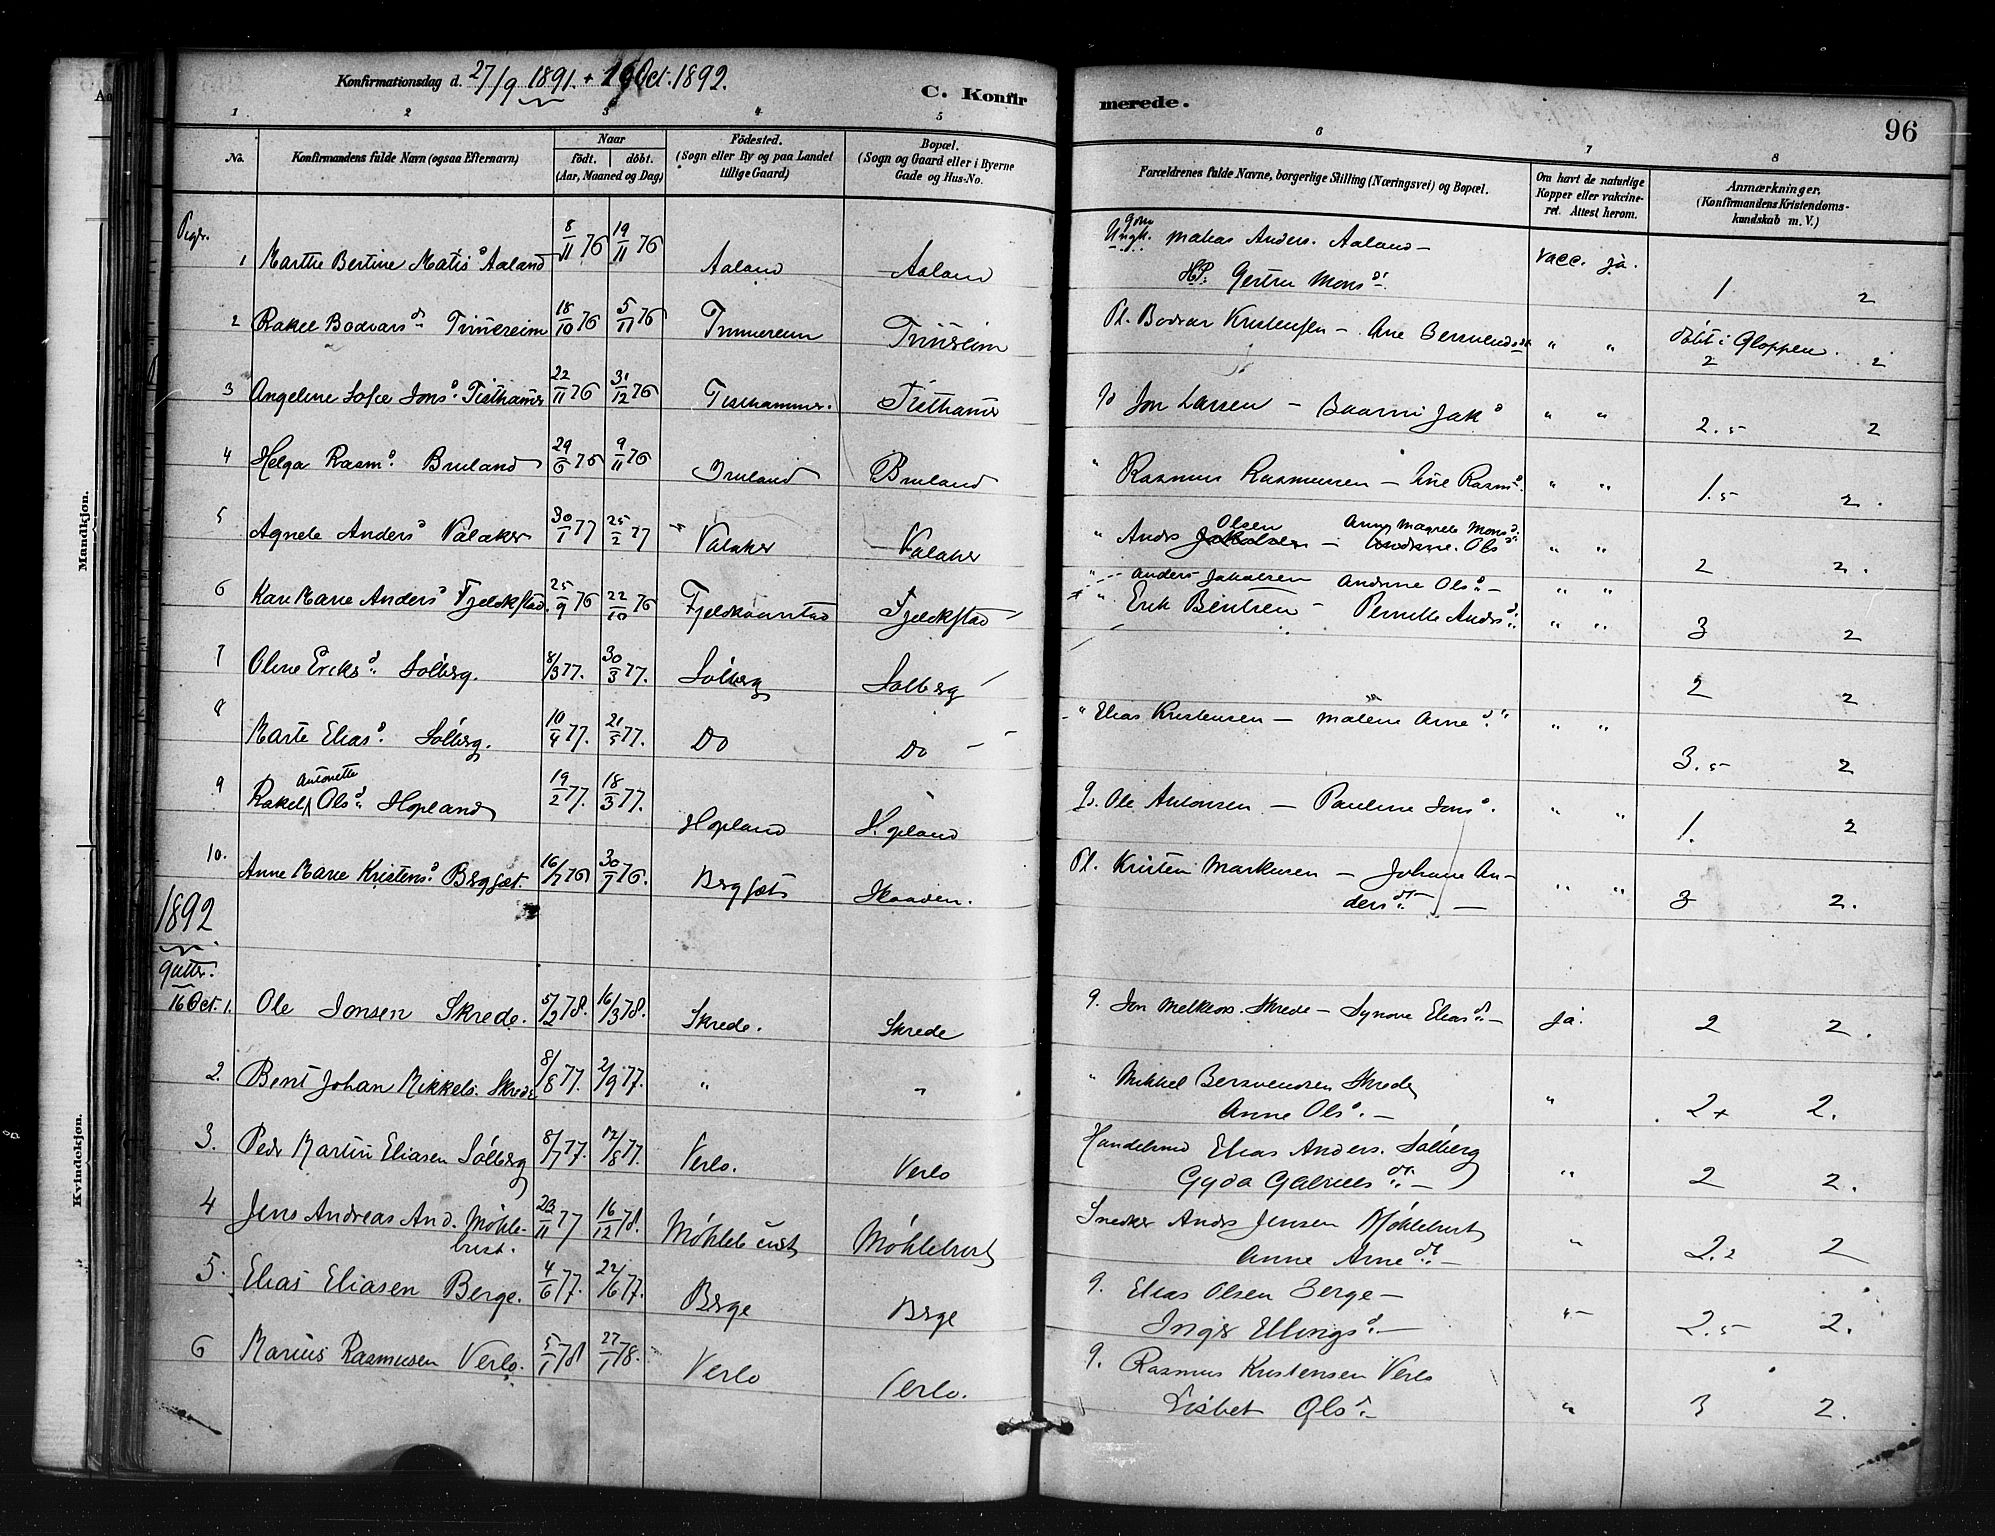 Konfirmationsdag d. 27/9 1891. + 16 Oct. 1892.
C. Konfirmerede.
96
1 2 3 4 5 6 7 8
No.
Konfirmandens fulde Navn (ogsaa Efternavn)
Naar
födt. döbt.
(Aar, Maaned og Dag)
Födested.
(Sogn eller By og paa Landet
tillige Gaard)
Bopæl.
(Sogn og Gaard eller i Byerne
Gade og Hus-No.
Forældrenes fulde Navne, borgerlige Stilling (Næringsvei) og Bopæl.
Om havt de naturlige
Kopper eller vakcine-
ret. Attest herom.
Anmærkninger.
(Konfirmandens Kristendoms-
kundskab m. V.)
Mandkjøn.
Kvindekjøn.
Piger.
1 Marthe Bertine Matis d Aaland 8/11 76 19/11 76 Aaland Aaland Ungk. Anders. Aaland – Vacc. ja.
HP. Mons d. 1 2
2 Rakel Bodvars d. 18/10 76 5/11 76 Pl. Bodvar Kristensen – Ane " " döbt i Gloppen.
2 2
3 Angeline Sofie Jons d. Tisthamer 22/11 76 31/12 76 Tisthammer. Tisthamer Jon Larsen – Jak d " " 2.5 2
4 Helga Rasm d. Bruland 29/6 76 9/11 76 Bruland Bruland " Rasmus Rasmussen – Ane Rasm d. " " 1.5 2.
5 Agnete Anders d Valaker 30/1 77 25/2 77 Valaker Valaker " Anders Jakobsen Olsen – Andrine Ols Anne Magrete Mons d. " " 2 2.
6 Kari Marie Anders d Fjeldkstad. 25/9 76 22/10 76 Fjeldkaarstad Fjeldkstad " Anders Jakobsen Andrine Ols d. – " "
" Erik Bentsen – Pernille Anders d. " " 3 2
7 Oline Eriks d. Solberg. 8/3 77. 30/3 77. Solberg Solberg 2 2
8 Marte Elias d. Solberg. 10/4 77. 21/5 77. Do Do " Elias Kristensen – Malene Arne d. " " 3.5 2
9 Rakel Antonette Ols d. Hopland 19/2 77. 18/3 77. Hopland Hopland G. Ole Antonsen – Pauline Jons d. " " 1. 2
10. Anne Marie Kristens d. Bergset. 16/7 76 30/7 76. Bergset Skaaden. Pl. Kristen Markusen – Johane An-
ders dt. – " " 3 2.
1892
Gutter.
16 Oct. 1. Ole Jonsen Skrede. 5/2 78. 16/3 78. Skrede. Skrede G. Jon Melkiors. Skrede – Synove Elias d. – ja. 2 2.
2. Bent Johan Mikkels. Skrede 8/8 77. 2/9 77. " " " Mikkel Bersvendsen Skrede
Anne Ols d. – " 2+ 2.
3. Peder Martin Eliasen Solberg 8/7 77. 12/8 77. Verlo. Verlo Handelsmd Elias Anders. Solberg
Gyda Gabriels dt. – " 2 2.
4 Jens Andreas And. Möhle-
bust. 23/11 77 16/12 78. Möhlebust Möhlebust Snedker Anders Jensen Möhlebust
Anne Arne dt. – " 2.2 2
5. Elias Eliasen Berge. 4/6 77. 22/6 77. Berge Berge G. Elias Olsen Berge –
Inger Ellings d. – " 2.5 2.
6 Marius Rasmusen Verlo. 5/1 78 27/1 78. Verlo Verlo. G. Rasmus Kristensen Verlo
Lisbet Ols d. – " 3 2.